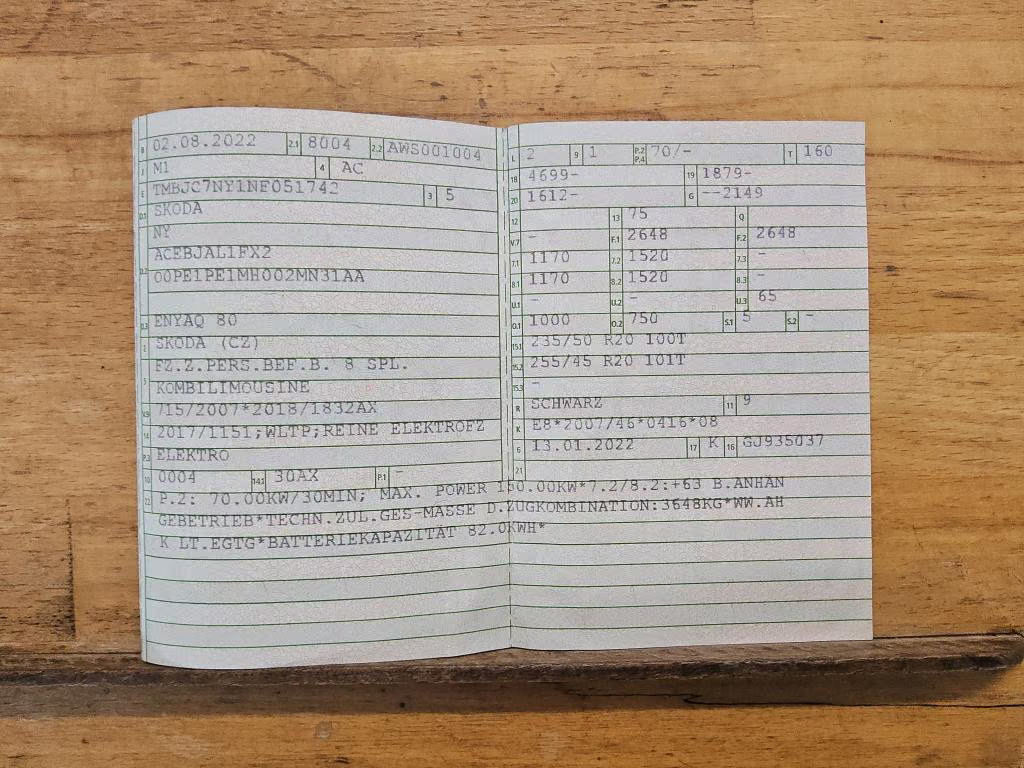 B 02.08.2022 2.1 8004 2.2 AWS001004
J M1 4 AC
E TMBJC7NY1NF051742 3 5
D.1 SKODA
NY
D.2 ACEBJAL1FX2
00PE1PE1MH002MN31AA
D.3 ENYAQ 80
2 SKODA (CZ)
5 FZ.Z.PERS.BEF.B. 8 SPL.
KOMBILIMOUSINE
V.9 715/2007*2018/1832AX
14 2017/1151;WLTP;REINE ELEKTROFZ
P.3 ELEKTRO
10 0004 14.1 30AX P.1 -
L 2 9 1 P.2 P.4 70/- T 160
18 4699- 19 1879-
20 1612- G --2149
12 13 75 Q
V.7 - F.1 2648 F.2 2648
7.1 1170 7.2 1520 7.3 -
8.1 1170 8.2 1520 8.3 -
U.1 - U.2 - U.3 65
O.1 1000 O.2 750 S.1 5 S.2 -
15.1 235/50 R20 100T
15.2 255/45 R20 101T
15.3 -
R SCHWARZ 11 9
K E8*2007/46*0416*08
6 13.01.2022 17 K 16 GJ935037
21
22 P.2: 70.00KW/30MIN; MAX. POWER 150.00KW*7.2/8.2:+63 B.ANHÄN
GEBETRIEB*TECHN.ZUL.GES-MASSE D.ZUGKOMBINATION:3648KG*WW.AH
K LT.EGTG*BATTERIEKAPAZITÄT 82.0KWH*